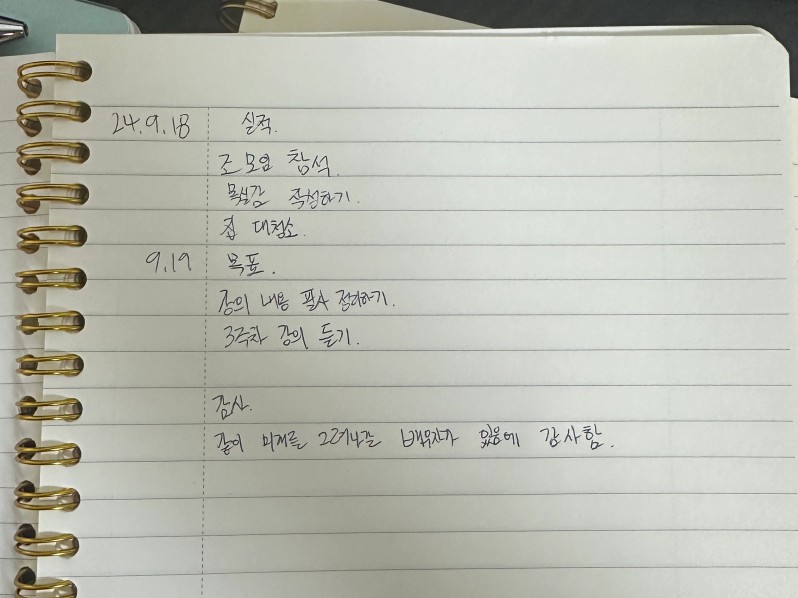 24.9.18 실적.
조모임 참석.
목실감 작성하기.
집 대청소.
9.19 목표.
강의 내용 필사 정리하기.
3주차 강의 듣기.
감사.
같이 미래를 그려나갈 배우자가 있음에 감사함.